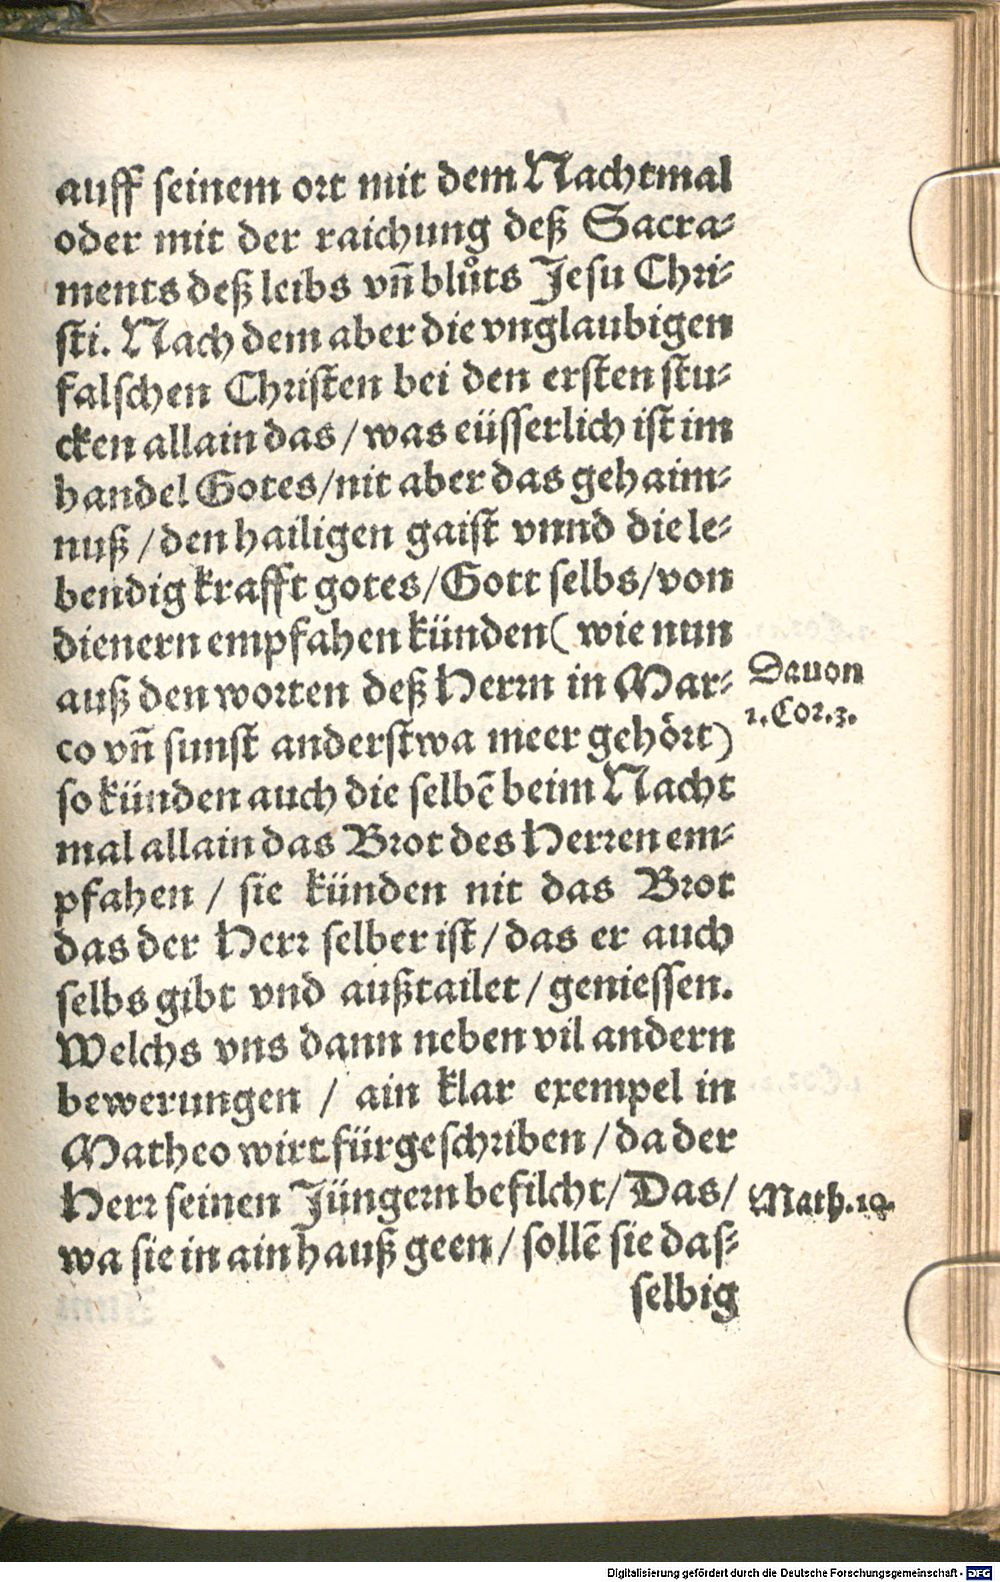 auff seinem ort mit dem Nachtmal
oder mit der raichung deß Sacra⸗
ments deß leibs vñ blůts Jesu Chri⸗
sti. Nach dem aber die vnglaubigen
falschen Christen bei den ersten stu⸗
cken allain das / was eüsserlich ist im
handel Gotes / nit aber das gehaim⸗
nuß / den hailigen gaist vnnd die le⸗
bendig krafft gotes / Gott selbs / von
dienern empfahen künden ( wie nun
auß den worten deß Herrn in Mar⸗
Dauon
1. Cor. 3.
co vñ sunst anderstwa meer gehört )
so künden auch die selbẽ beim Nacht
mal allain das Brot des Herren em⸗
pfahen / sie künden nit das Brot
das der Herr selber ist / das er auch
selbs gibt vnd außtailet / geniessen.
Welchs vns dann neben vil andern
bewerungen / ain klar exempel in
Matheo wirt fürgeschriben / da der
Herr seinen Jüngern befilcht / Das /
Math. 10.
wa sie in ain hauß geen / sollẽ sie das⸗
selbig
Digitalisierung gefördert durch die Deutsche Forschungsgemeinschaft - DFG